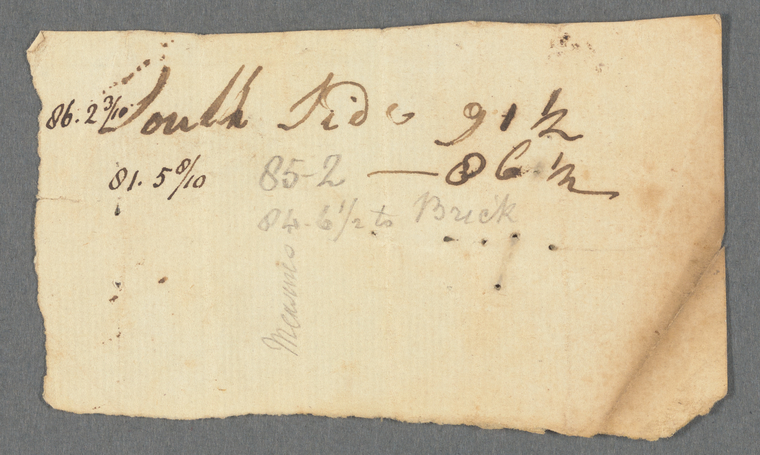 86. 2 3/10 South Side 91 1/2
81. 5 8/10 85-2 — 86 1/2
84. 6 1/2 to Brick
Measures